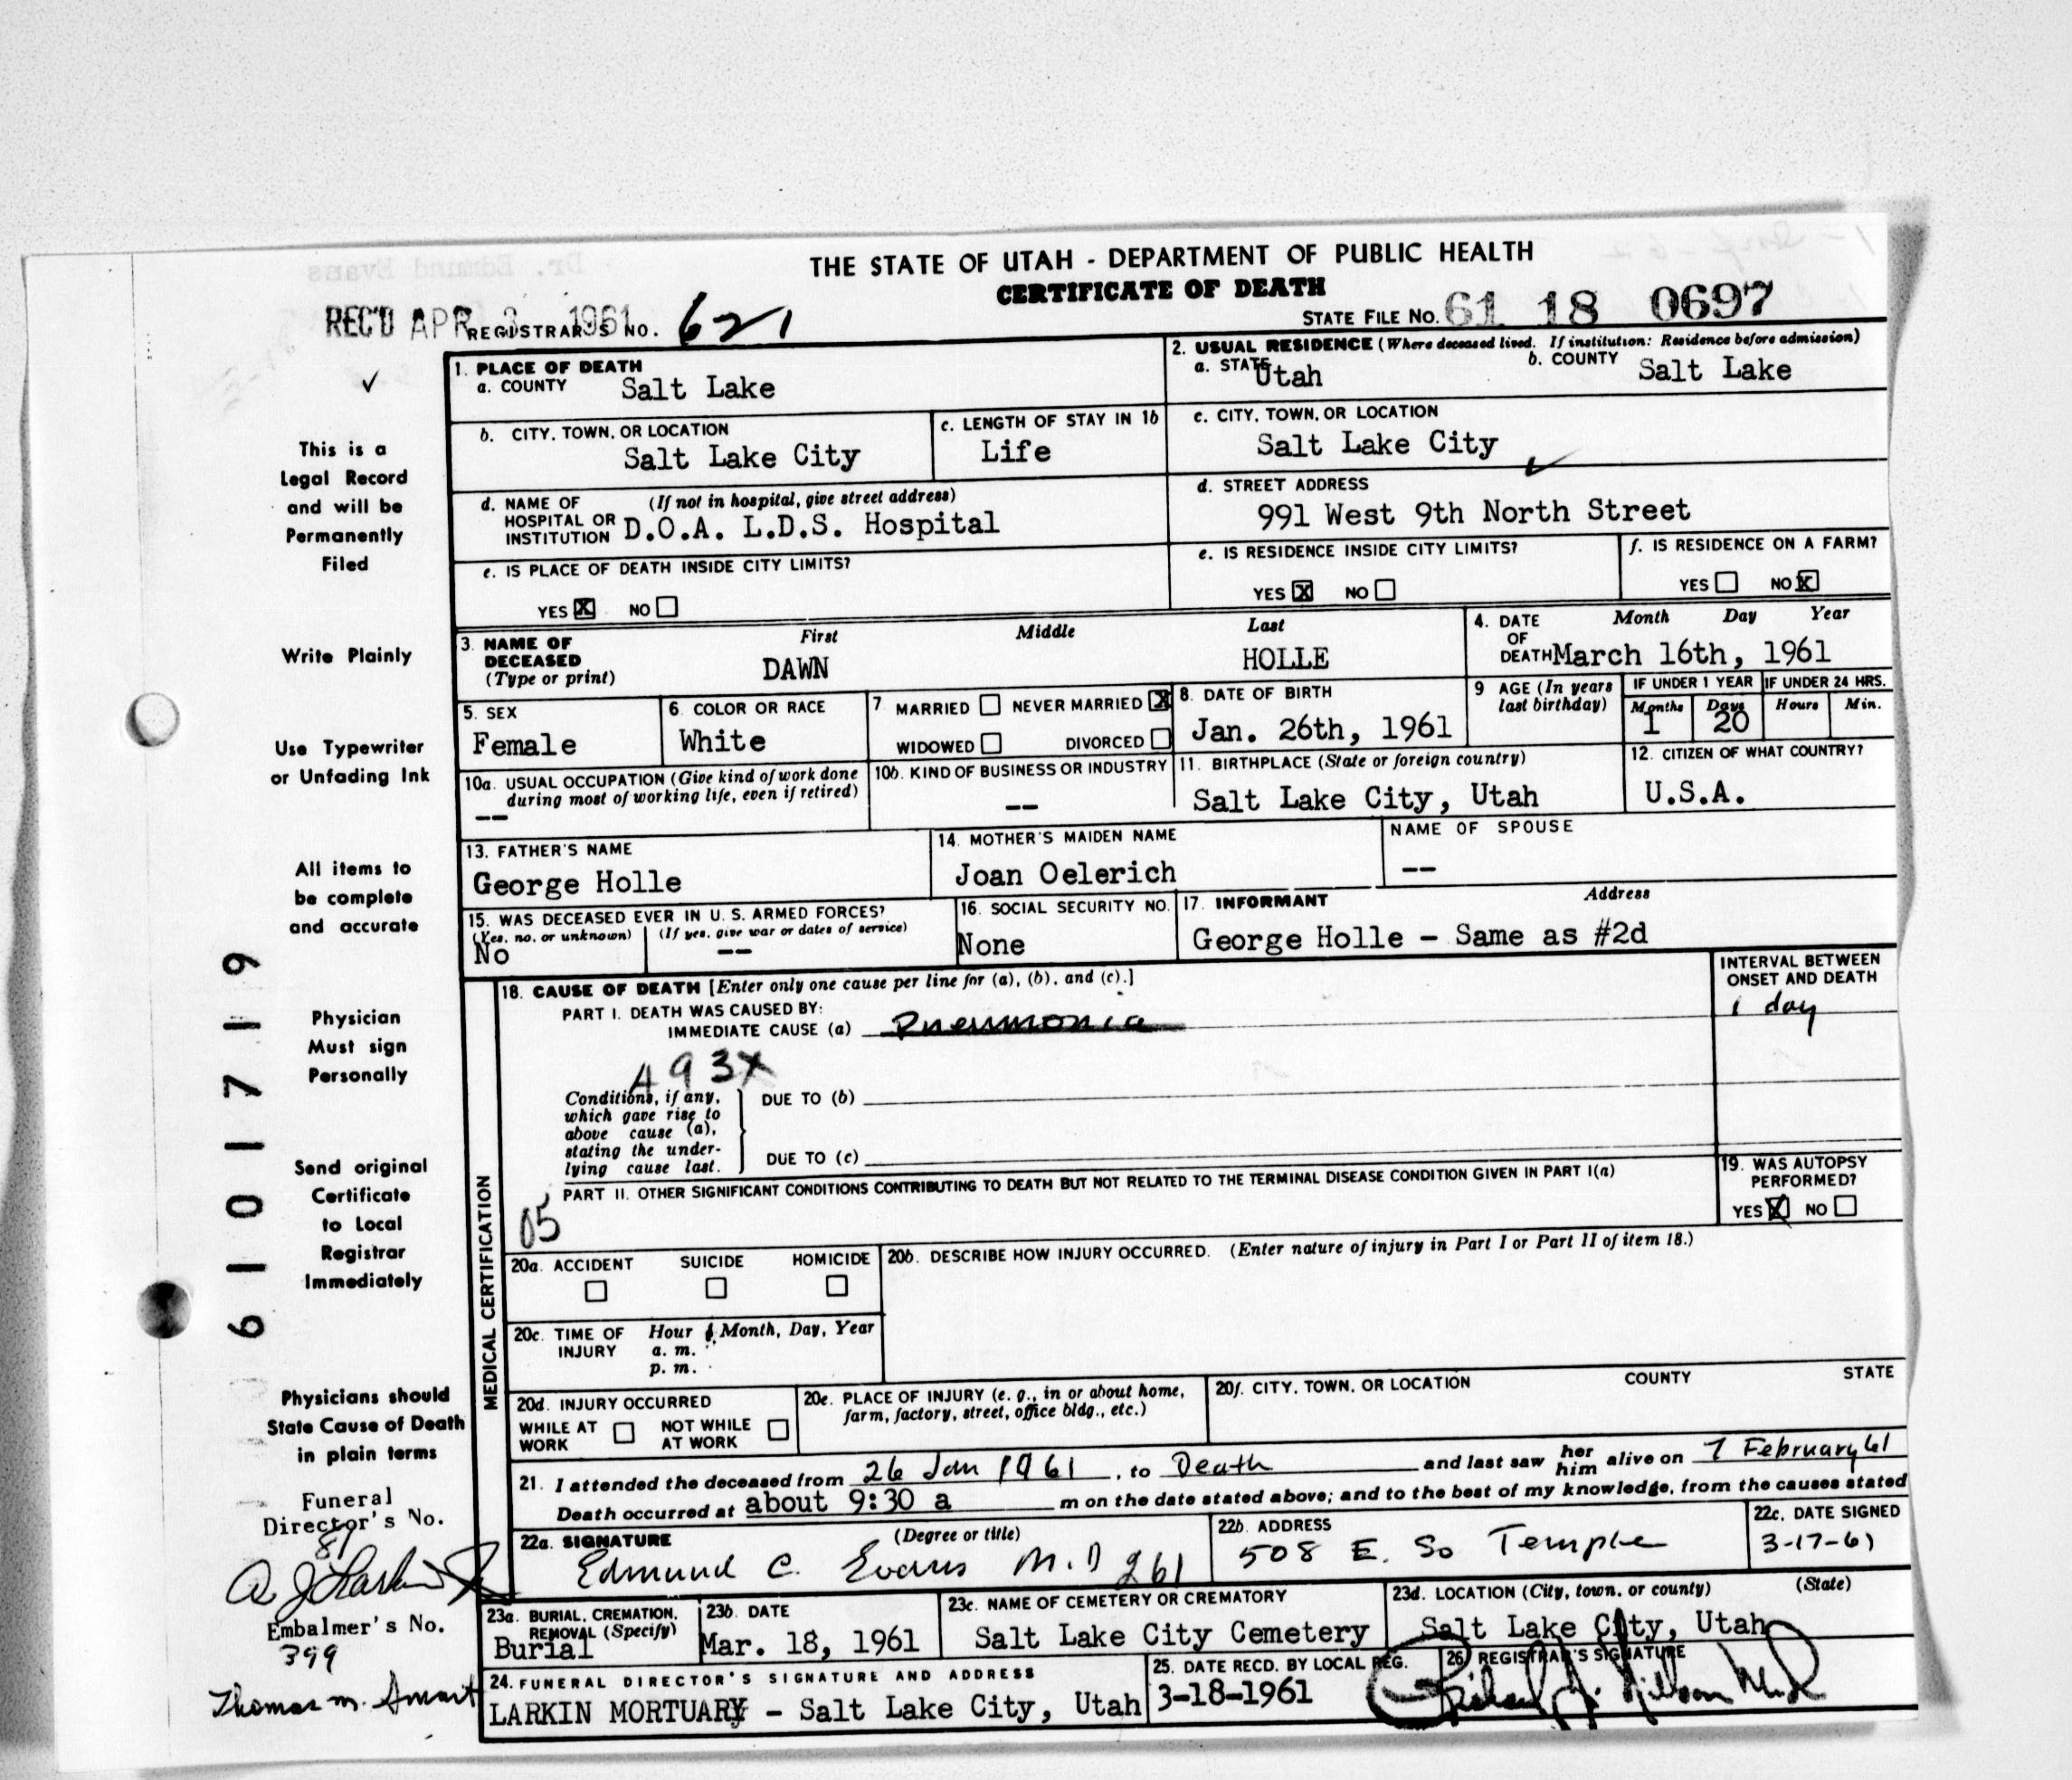 THE STATE OF UTAH - DEPARTMENT OF PUBLIC HEALTH
CERTIFICATE OF DEATH
REC'D APR 3 1961 REGISTRAR'S NO. 621
STATE FILE NO. 61 18 0697
1. PLACE OF DEATH
a. COUNTY Salt Lake
2. USUAL RESIDENCE (Where deceased lived. If institution: Residence before admission)
a. STATE Utah b. COUNTY Salt Lake
b. CITY, TOWN, OR LOCATION
Salt Lake City
c. LENGTH OF STAY IN 1b
Life
c. CITY, TOWN, OR LOCATION
Salt Lake City
d. NAME OF HOSPITAL OR INSTITUTION (If not in hospital, give street address)
D.O.A. L.D.S. Hospital
d. STREET ADDRESS
991 West 9th North Street
e. IS PLACE OF DEATH INSIDE CITY LIMITS?
YES X NO
e. IS RESIDENCE INSIDE CITY LIMITS?
YES X NO
f. IS RESIDENCE ON A FARM?
YES NO X
3. NAME OF DECEASED (Type or print)
First Middle Last
DAWN HOLLE
4. DATE OF DEATH Month Day Year
March 16th, 1961
5. SEX
Female
6. COLOR OR RACE
White
7. MARRIED NEVER MARRIED X
WIDOWED DIVORCED
8. DATE OF BIRTH
Jan. 26th, 1961
9 AGE (In years last birthday)
IF UNDER 1 YEAR IF UNDER 24 HRS.
Months Days Hours Min.
1 20
10a. USUAL OCCUPATION (Give kind of work done during most of working life, even if retired)
--
10b. KIND OF BUSINESS OR INDUSTRY
--
11. BIRTHPLACE (State or foreign country)
Salt Lake City, Utah
12. CITIZEN OF WHAT COUNTRY?
U.S.A.
13. FATHER'S NAME
George Holle
14. MOTHER'S MAIDEN NAME
Joan Oelerich
NAME OF SPOUSE
--
15. WAS DECEASED EVER IN U. S. ARMED FORCES?
(Yes, no, or unknown) (If yes, give war or dates of service)
No --
16. SOCIAL SECURITY NO.
None
17. INFORMANT Address
George Holle - Same as #2d
MEDICAL CERTIFICATION
18. CAUSE OF DEATH [Enter only one cause per line for (a), (b), and (c).]
INTERVAL BETWEEN ONSET AND DEATH
PART I. DEATH WAS CAUSED BY:
IMMEDIATE CAUSE (a) Pneumonia
1 day
493X
Conditions, if any, which gave rise to above cause (a), stating the underlying cause last.
DUE TO (b)
DUE TO (c)
PART II. OTHER SIGNIFICANT CONDITIONS CONTRIBUTING TO DEATH BUT NOT RELATED TO THE TERMINAL DISEASE CONDITION GIVEN IN PART I(a)
05
19. WAS AUTOPSY PERFORMED?
YES X NO
20a. ACCIDENT SUICIDE HOMICIDE
20b. DESCRIBE HOW INJURY OCCURRED. (Enter nature of injury in Part I or Part II of item 18.)
20c. TIME OF INJURY Hour Month, Day, Year
a. m.
p. m.
20d. INJURY OCCURRED
WHILE AT WORK NOT WHILE AT WORK
20e. PLACE OF INJURY (e. g., in or about home, farm, factory, street, office bldg., etc.)
20f. CITY, TOWN, OR LOCATION COUNTY STATE
21. I attended the deceased from 26 Jan 1961, to Death and last saw her him alive on 7 February 61
Death occurred at about 9:30 a m on the date stated above; and to the best of my knowledge, from the causes stated
22a. SIGNATURE (Degree or title)
Edmund C. Evans M.D 261
22b. ADDRESS
508 E. So Temple
22c. DATE SIGNED
3-17-61
23a. BURIAL, CREMATION, REMOVAL (Specify)
Burial
23b. DATE
Mar. 18, 1961
23c. NAME OF CEMETERY OR CREMATORY
Salt Lake City Cemetery
23d. LOCATION (City, town, or county) (State)
Salt Lake City, Utah
24. FUNERAL DIRECTOR'S SIGNATURE AND ADDRESS
LARKIN MORTUARY - Salt Lake City, Utah
25. DATE RECD. BY LOCAL REG.
3-18-1961
26 REGISTRAR'S SIGNATURE
This is a
Legal Record
and will be
Permanently
Filed
Write Plainly
Use Typewriter
or Unfading Ink
All items to
be complete
and accurate
Physician
Must sign
Personally
Send original
Certificate
to Local
Registrar
Immediately
Physicians should
State Cause of Death
in plain terms
Funeral
Director's No.
Embalmer's No.
399
Thomas M. Smart
6101719